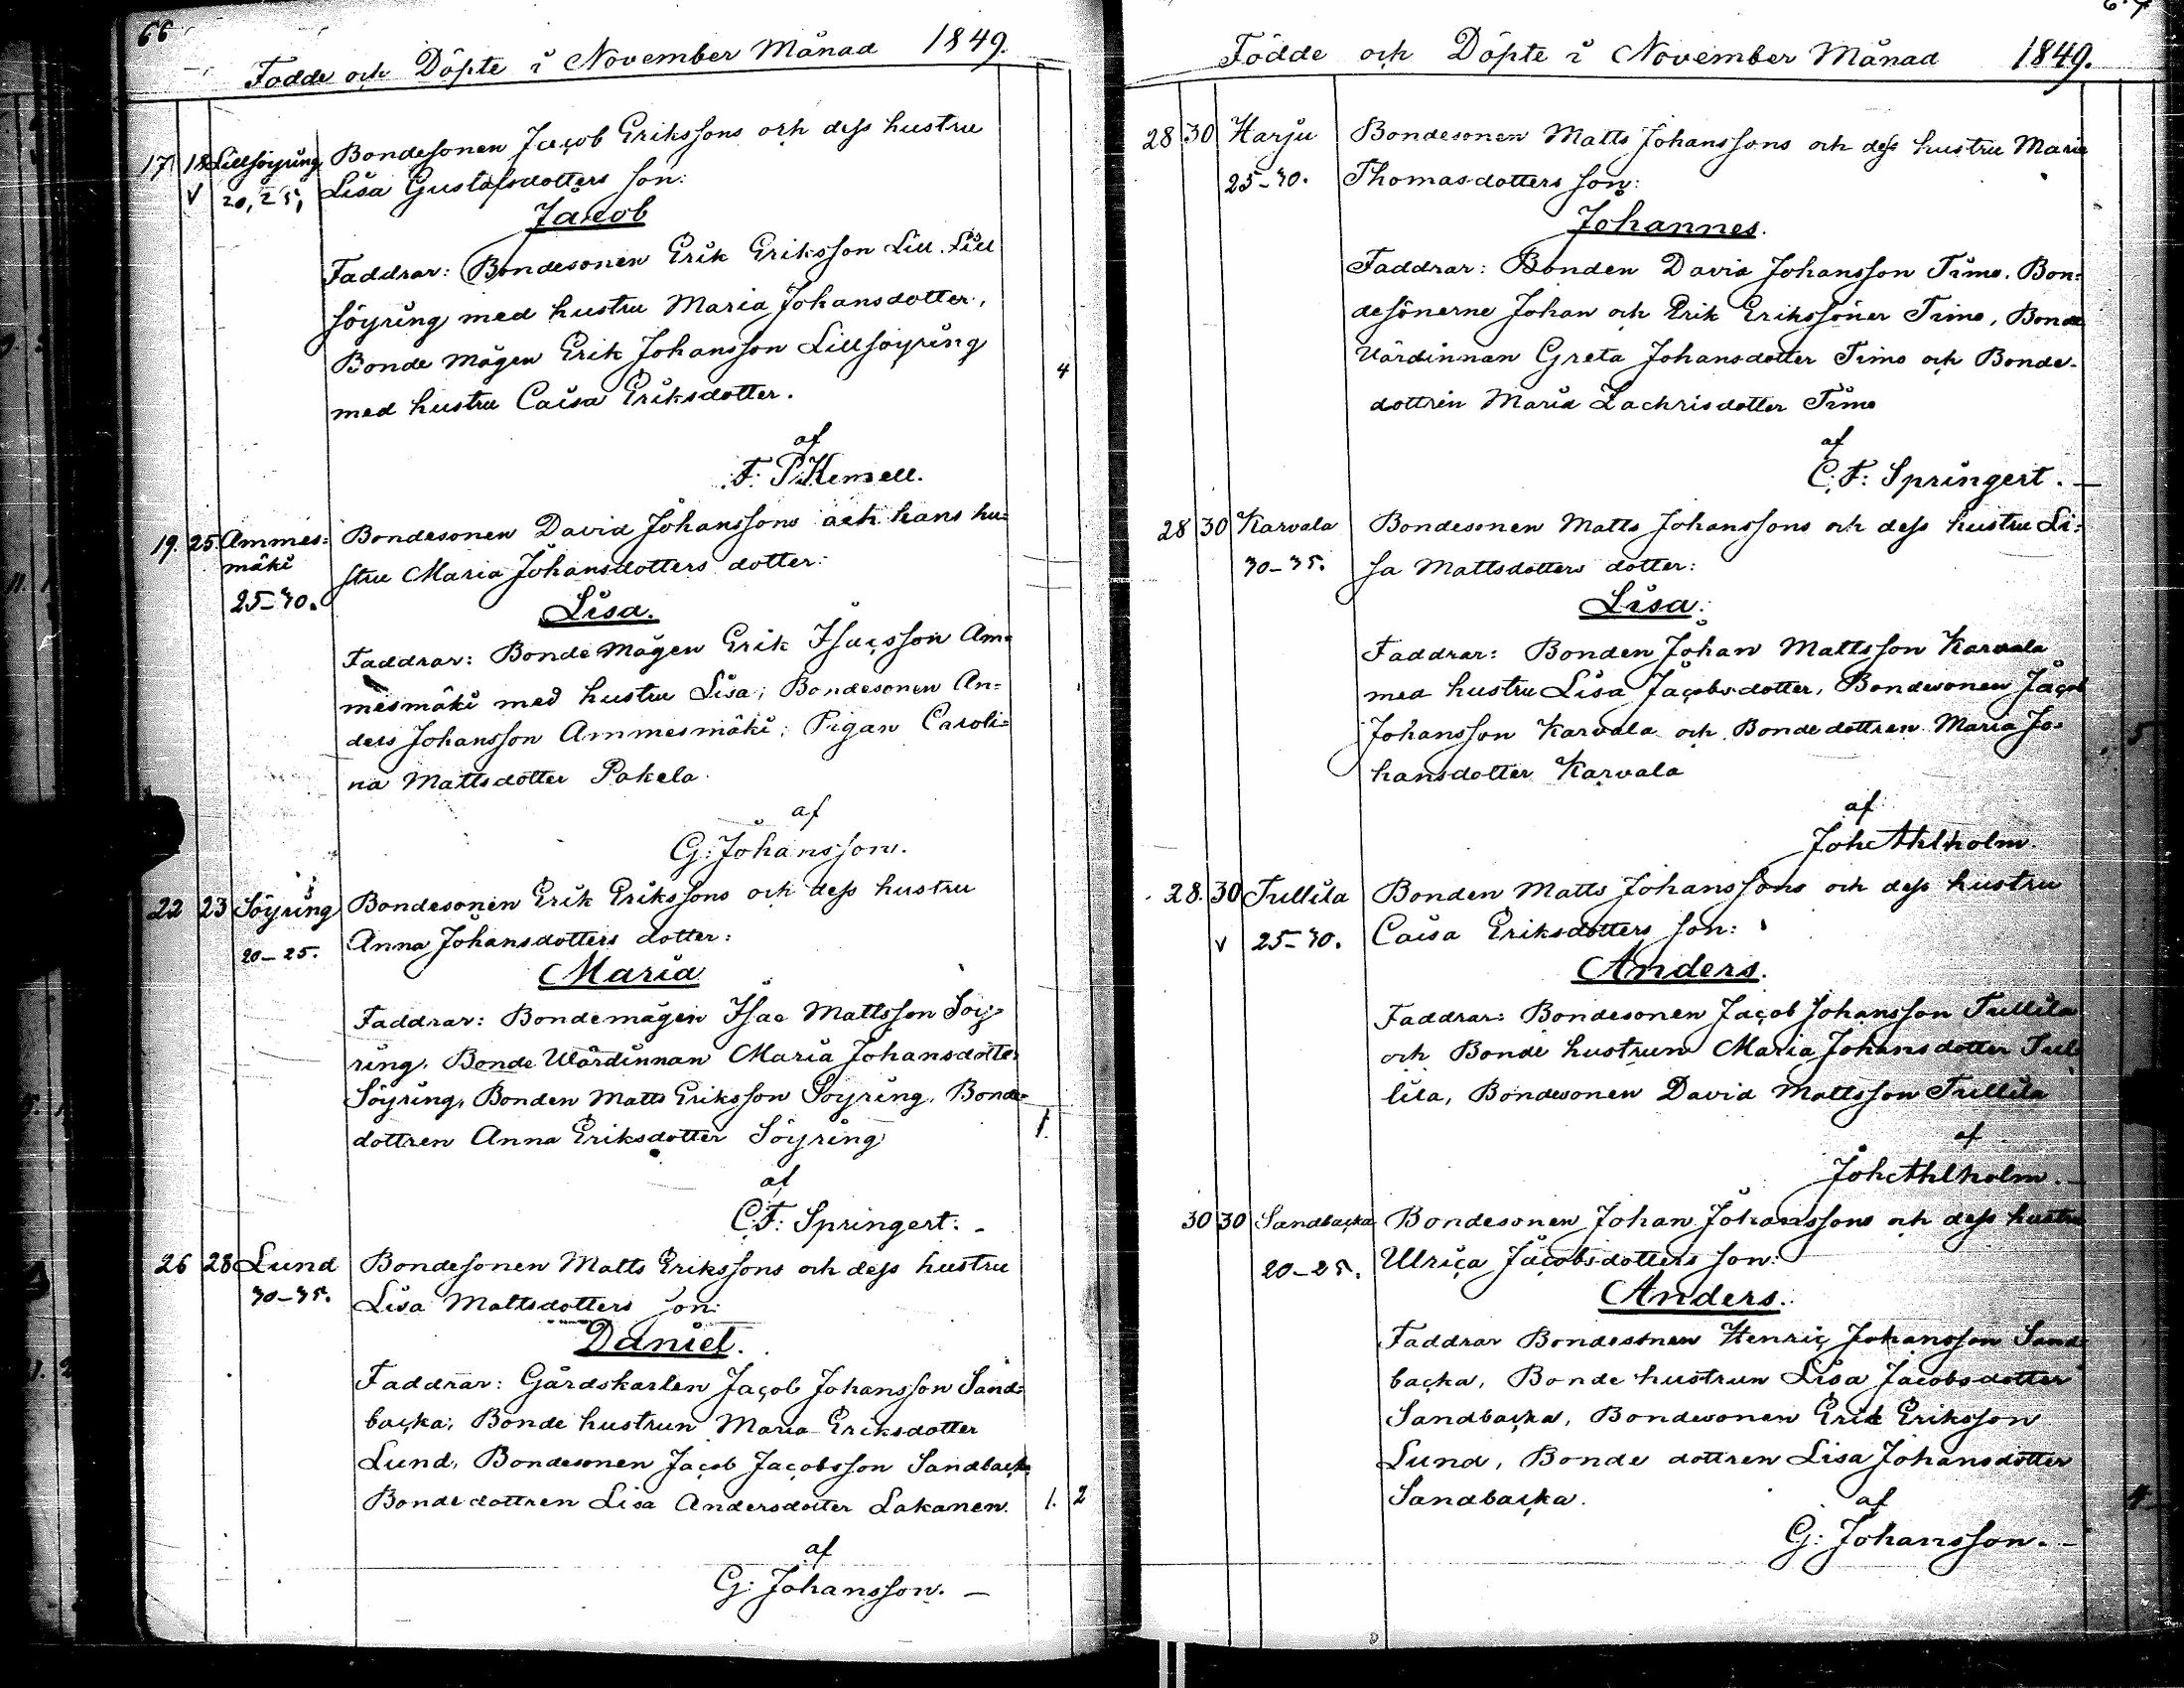 66
Födde och Döpte i November Månad 1849.
17. 18 Lillsöyring Bondesonen Jacob Erikssons och dess hustru
V 20, 25, Lisa Gustafsdotters son:
Jacob
Faddrar: Bondesonen Erik Eriksson Lill. Lill
söyring med hustru Maria Johansdotter,
Bonde mågen Erik Johansson Lillsöyring
med hustru Caisa Eriksdotter.
4
af
F. P. Kemell.
19. 25 Ammes= Bondesonen David Johanssons och hans hu=
mäki stru Maria Johansdotters dotter:
25-30.
Lisa.
Faddrar: Bonde mågen Erik Isacsson Am=
mesmäki med hustru Lisa; Bondesonen An=
ders Johansson Ammesmäki; Pigan Caroli=
na Mattsdotter Pokela.
af
G: Johansson.
22 23 Söyring Bondesonen Erik Erikssons och dess hustru
20-25. Anna Johansdotters dotter:
Maria
Faddrar: Bondemågen Isac Mattsson Söy=
ring, Bonde Wärdinnan Maria Johansdotter
Söyring, Bonden Matts Eriksson Söyring, Bonde=
dottren Anna Eriksdotter Söyring
1.
af
C.F: Springert. -
26 28 Lund Bondesonen Matts Erikssons och dess hustru
30-35. Lisa Mattsdotters son:
Daniel.
Faddrar: Gårdskarlen Jacob Johansson Sand=
backa, Bonde hustrun Maria Eriksdotter
Lund, Bondesonen Jacob Jacobsson Sandbacka
Bonde dottren Lisa Andersdotter Lakanen. 1. 2
af
G: Johansson. -
67
Födde och Döpte i November Månad 1849.
28 30 Harju Bondesonen Matts Johanssons och dess hustru Maria
25-30. Thomasdotters son:
Johannes.
Faddrar: Bonden David Johansson Timo. Bon=
desönerne Johan och Erik Erikssöner Timo, Bonde
Värdinnan Greta Johansdotter Timo och Bonde-
dottrin Maria Zachrisdotter Timo
af
C: F: Springert. -
28 30 Karvala Bondesonen Matts Johanssons och dess hustru Li=
30-35. sa Mattsdotters dotter:
Lisa.
Faddrar: Bonden Johan Mattsson Karvala
med hustru Lisa Jacobsdotter, Bondesonen Jacob
Johansson Karvala och Bonde dottren Maria Jo=
hansdotter Karvala
5
af
Joh Ahlholm.
28. 30 Tullila Bonden Matts Johanssons och dess hustru
V 25-30. Caisa Eriksdotters son:
Anders.
Faddrar: Bondesonen Jacob Johansson Tullila
och Bonde hustrun Maria Johansdotter Tul=
lila, Bondesonen David Mattsson Tullila
af
Joh Ahlholm. -
30 30 Sandbacka Bondesonen Johan Johanssons och dess hustru
20-25. Ulrica Jacobsdotters son:
Anders.
Faddrar Bondesonen Henric Johansson Sand=
backa, Bonde hustrun Lisa Jacobsdotter
Sandbacka, Bondesonen Erik Eriksson
Lund, Bonde dottren Lisa Johansdotter
Sandbacka.
4
af
G: Johansson. -